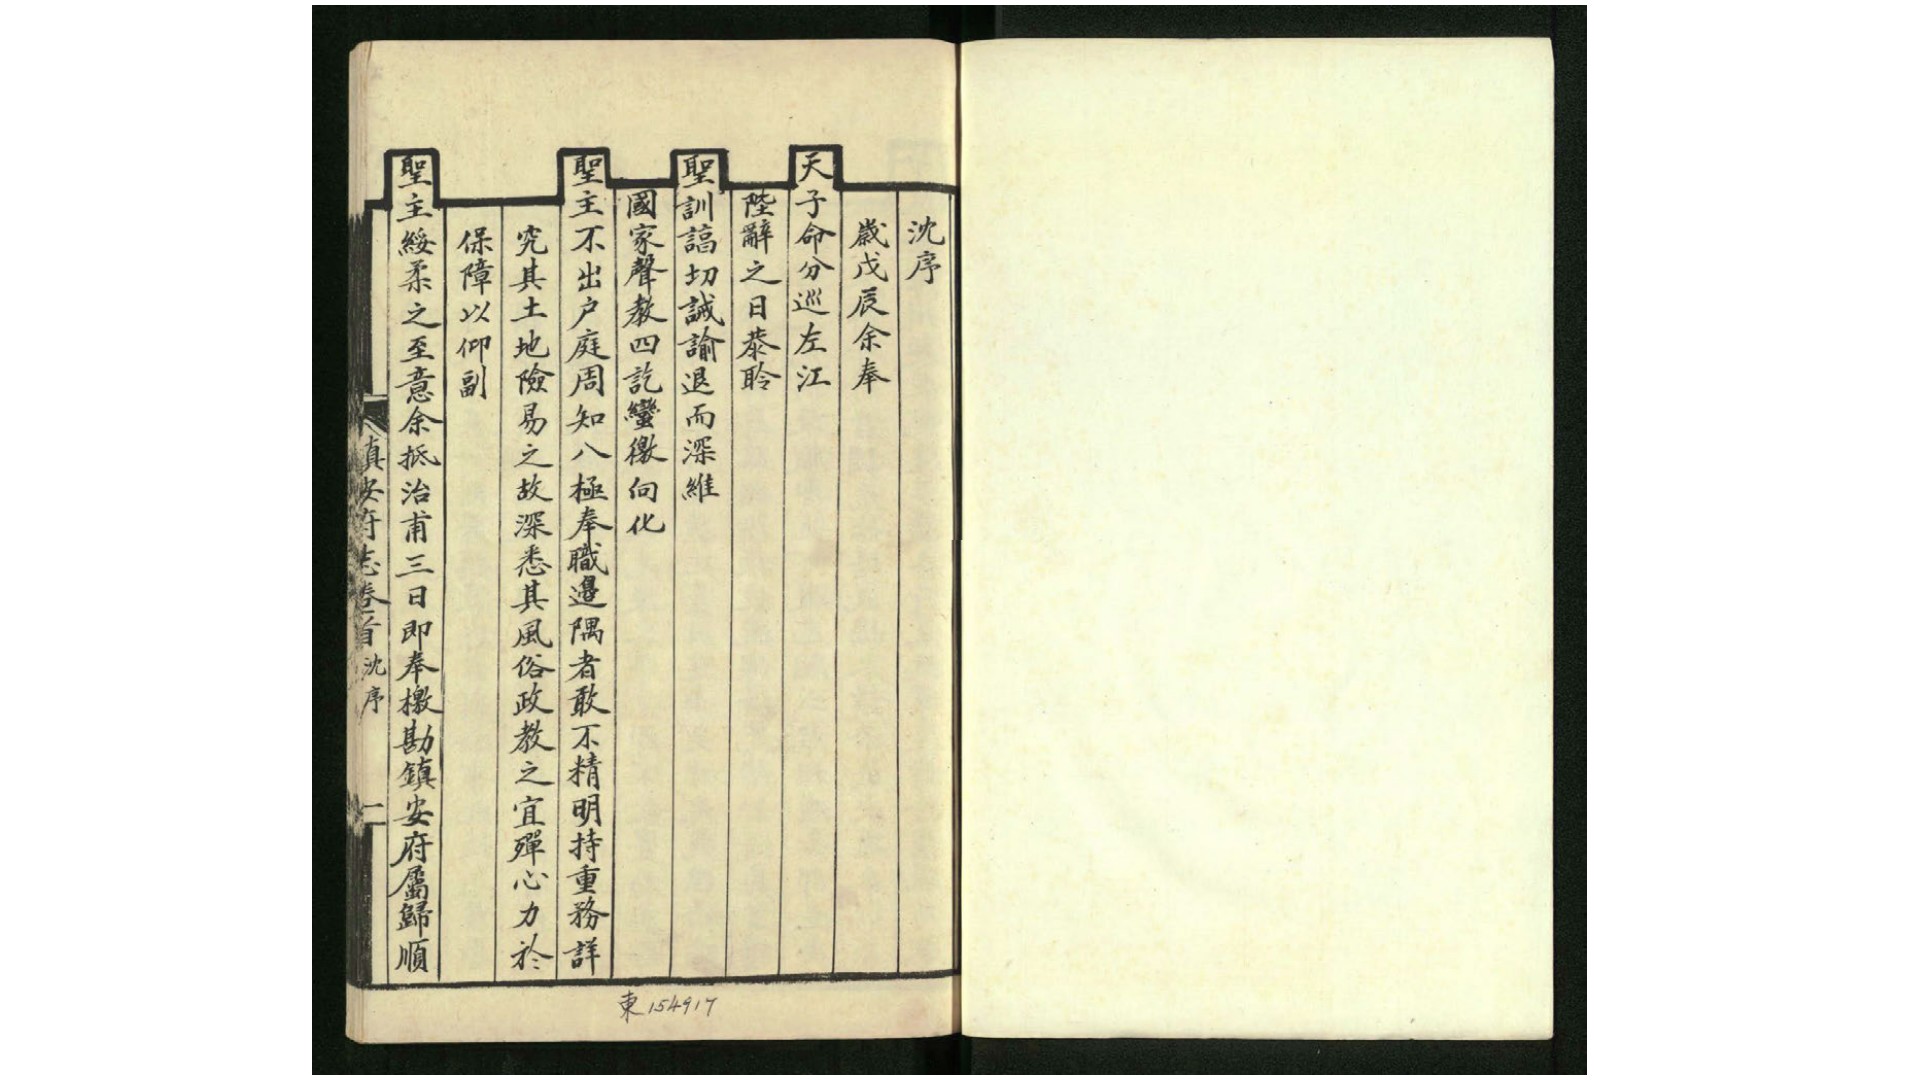 沈序
歲戊辰余奉
天子命分巡左江
陛辭之日恭聆
聖訓諄切誡諭退而深維
國家聲教四訖蠻徼向化
聖主不出户庭周知八極奉職邊隅者敢不精明持重務詳
究其土地險易之故深悉其風俗政教之宜殫心力於
保障以仰副
聖主綏柔之至意余抵治甫三日即奉檄勘鎮安府屬歸順
鎮安府志卷首 沈序 一
東154917